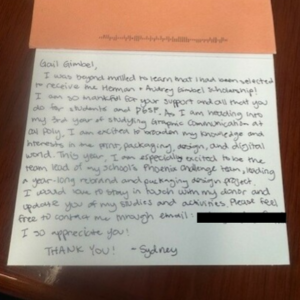 Gail Gömbel,
I was beyond thrilled to learn that I had been selected
to receive the Herman + Audrey Gömbel Scholarship!
I am so thankful for your support and all that you
do for students and PGSF. As I am heading into
my 3rd year of studying Graphic Communication at
Cal Poly, I am excited to broaden my knowledge and
interests in the print, packaging, design, and digital
world. This year, I am especially excited to be the
team lead of my school's Phoenix Challenge team, leading
a year-long rebrand and packaging design project.
I would love to stay in touch with my donor and
update you of my studies and activities. Please feel
free to contact me through email:
I so appreciate you!
THANK YOU! - Sydney